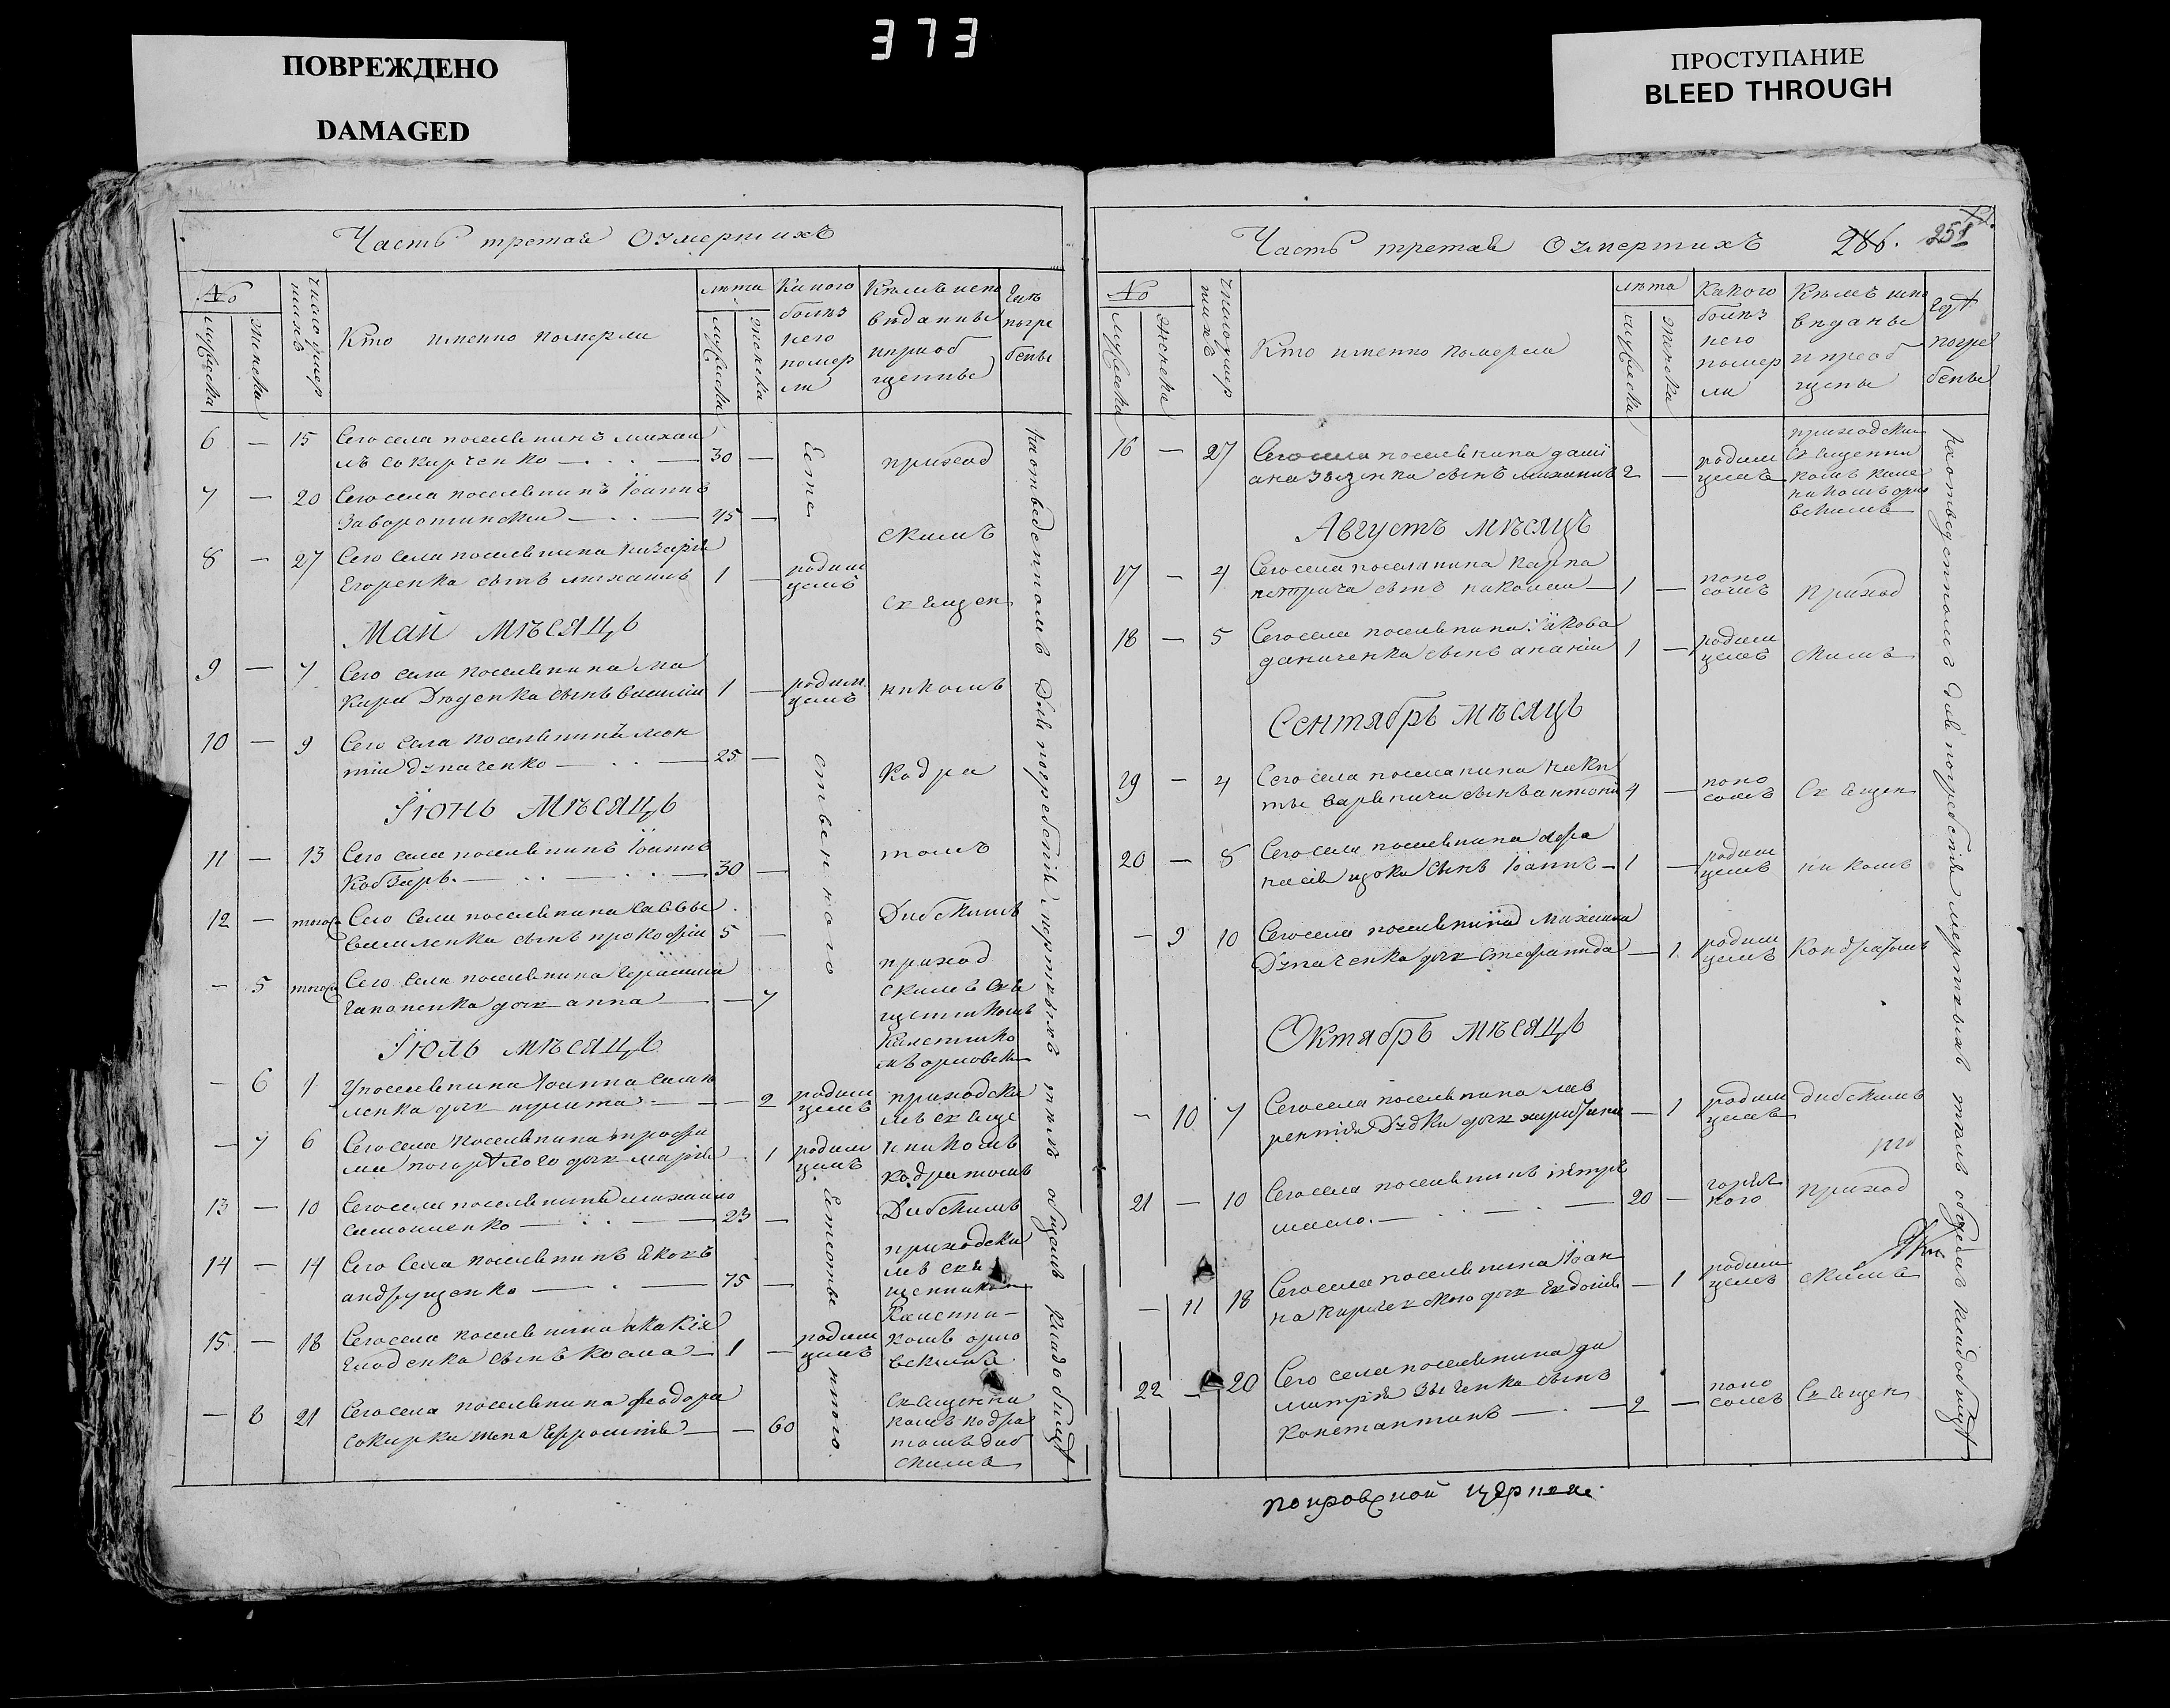 373
ПОВРЕЖДЕНО
DAMAGED
ПРОСТУПАНИЕ
BLEED THROUGH
Часть третая Оумершихъ
№
мужеска
женска
число умершихъ
Кто именно померли
лѣта
мужеска
женска
Какого
болѣз
нею
помер
ли
Кѣмъ испо
вѣданны
и приоб
щенны
Гдѣ
погре
бены
6 — 15 Сего села поселянинъ михаи
лъ сокирченко — 30 —
7 — 20 Сего села поселянинъ Іоаннъ
Заворотинскій — 45 —
8 — 27 Сего села поселянина назарія
Егоренка сынъ михаилъ 1 — родим
цемъ
приход
скимъ
священ
Май Мѣсяцъ
9 — 7 Сего села поселянина ма
кара Дюденка сынъ василій 1 — родим
цемъ
никомъ
10 — 9 Сего села поселянинъ
Дуначенко — 25 —
Кодра
Іюнь Мѣсяцъ
11 — 13 Сего села поселянинъ Іоаннъ
Кобзарь — 30 —
томъ
12 — тогоже Сего села поселянина саввы
василенка сынъ прокофій 5 —
Дибскимъ
— 5 тогоже Сего села поселянина герасима
гапоненка дочь анна — 7
приход
скимъ свя
щенникомъ
Іюль мѣсяцъ
— 6 1 У поселянина Іоанна
— 2 родим
цемъ
приходски
мъ свяще
— 7 6 Сего села поселянина трофи
ма погорѣлого дочь марія 1 родим
цемъ
нникомъ
кодратомъ
13 — 10 Сего села поселянинъ михаило
симоненко — 23 —
Дибскимъ
14 — 14 Сего села поселянинъ Яковъ
андрущенко — 75 —
приходски
мъ свя
щенником
15 — 18 Сего села поселянина акакія
сынъ косма — 1 — родим
цемъ
комъ орло
вскимъ
— 8 21 Сего села поселянина феодора
сокирки жена Ефросинія — 60
Священни
комъ кодра
томъ диб
скимъ
Естественною
Естественною
приходскомъ Для погребенія мертвыхъ тѣлъ общемъ кладбищѣ
Часть третая Оумершихъ 286. 251
№
мужеска
женска
число умершихъ
Кто именно померли
лѣта
мужеска
женска
Какого
болѣз
нею
помер
ли
Кѣмъ испо
вѣданы
и преоб
щены
Гдѣ
погре
бены
16 — 27 Сего села поселянина
сынъ михаилъ 2 — родим
цемъ
приходским
Священни
комъ
орло
вскимъ
Августъ мѣсяцъ
17 — 4 Сего села поселянина карпа
петрича сынъ николай — 1 — поно
сомъ
приход
18 — 5 Сего села поселянина Іякова
даниченка сынъ ананій 1 — родим
цемъ
скимъ
Сентябрь Мѣсяцъ
19 — 4 Сего села поселянина ники
ты сынъ антоній 4 — поно
сомъ
Священ
20 — 8 Сего села поселянина афа
насія цзюка сынъ Іоаннъ — 1 — родим
цемъ
никомъ
— 9 10 Сего села поселянина Михаила
Дуначенка дочь Стефанида — 1 родим
цемъ
Кондратомъ
Октябрь Мѣсяцъ
— 10 7 Сего села поселянина лав
рентія Дудки дочь харитина — 1 родим
цемъ
дибскимъ
21 — 10 Сего села поселянинъ петръ
масло — 20 — горяч
кого
приход
— 11 18 Сего села поселянина Іоан
на дочь Евдокія — 1 родим
цемъ
скимъ
22 — 20 Сего села поселянина ди
митрія сынъ
Константинъ — 2 — поно
сомъ
Священ
покровской церкви